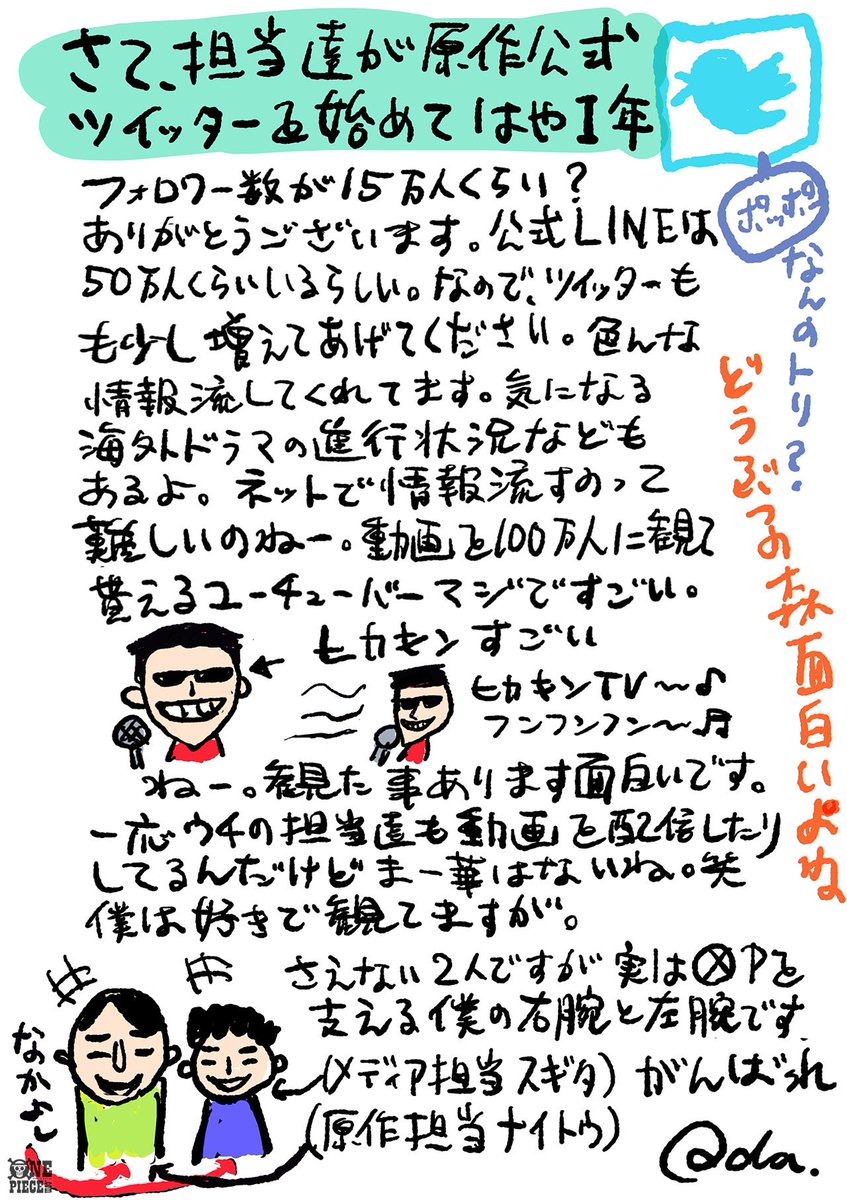 さて、担当達が原作公式
ツイッターを始めてはや1年
フォロワー数が15万人くらい?
ありがとうございます。公式LINEは
50万人くらいいるらしい。なので、ツイッターも
も少し増えてあげてください。色んな
情報流してくれてます。気になる
海外ドラマの進行状況なども
あるよ。ネットで情報流すのって
難しいのねー。動画を100万人に観て
貰えるユーチューバーマジですごい。
ヒカキンすごい
ヒカキンTV〜♪
フンフンフン〜♬
ねー。観た事あります面白いです。
一応ウチの担当達も動画を配信したり
してるんだけどまー華はないね。笑
僕は好きで観てますが。
さえない2人ですが実は⊗Pを
支える僕の右腕と左腕です
(メディア担当スギタ)がんばれ
(原作担当ナイトウ)
@da.
なかよし
ポッポ
なんのトリ?
どうぶつの森面白いよね
ONE
PIECE